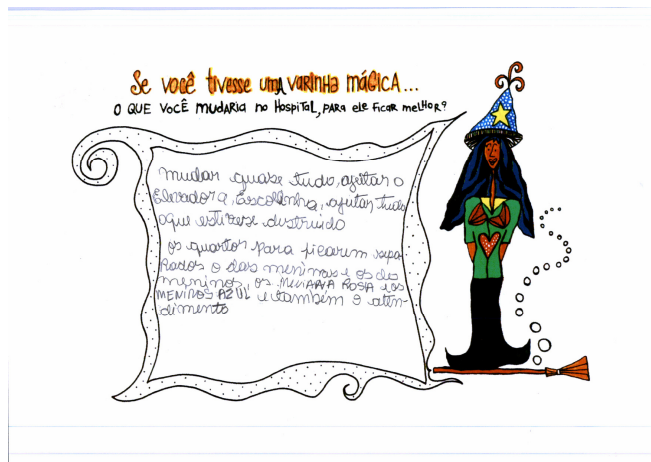 Se você tivesse uma varinha mágica...
O QUE VOCÊ MUDARIA no HospitaL, PARA ele FICAR melhoR?
mudar quase tudo, ajeitar o
Elevador a, Escolinha, ajutar tudo
oque estivese destruido
os quartos para ficarem sepa
Rados o das meninas e os dos
meninos, os MENIANA ROSA e os
MENINOS AZUL e também o aten-
dimento